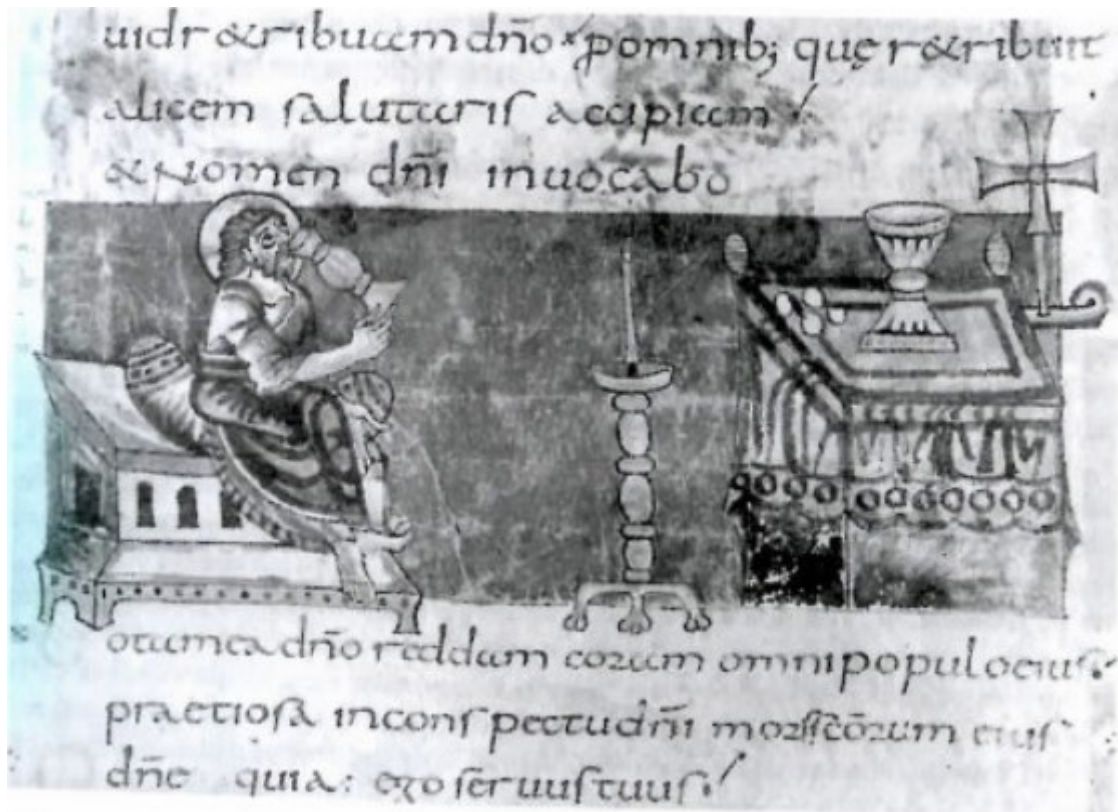 uid r&ribuam dño pomnib; quę r&ribuit
alicem salutaris accipiam
& Nomen dñi inuocabo
otamea dño reddam coram omni populo eius.
praetiosa inconspectu dñi mors scōrum eius
dñe quia: ego seruus tuus.